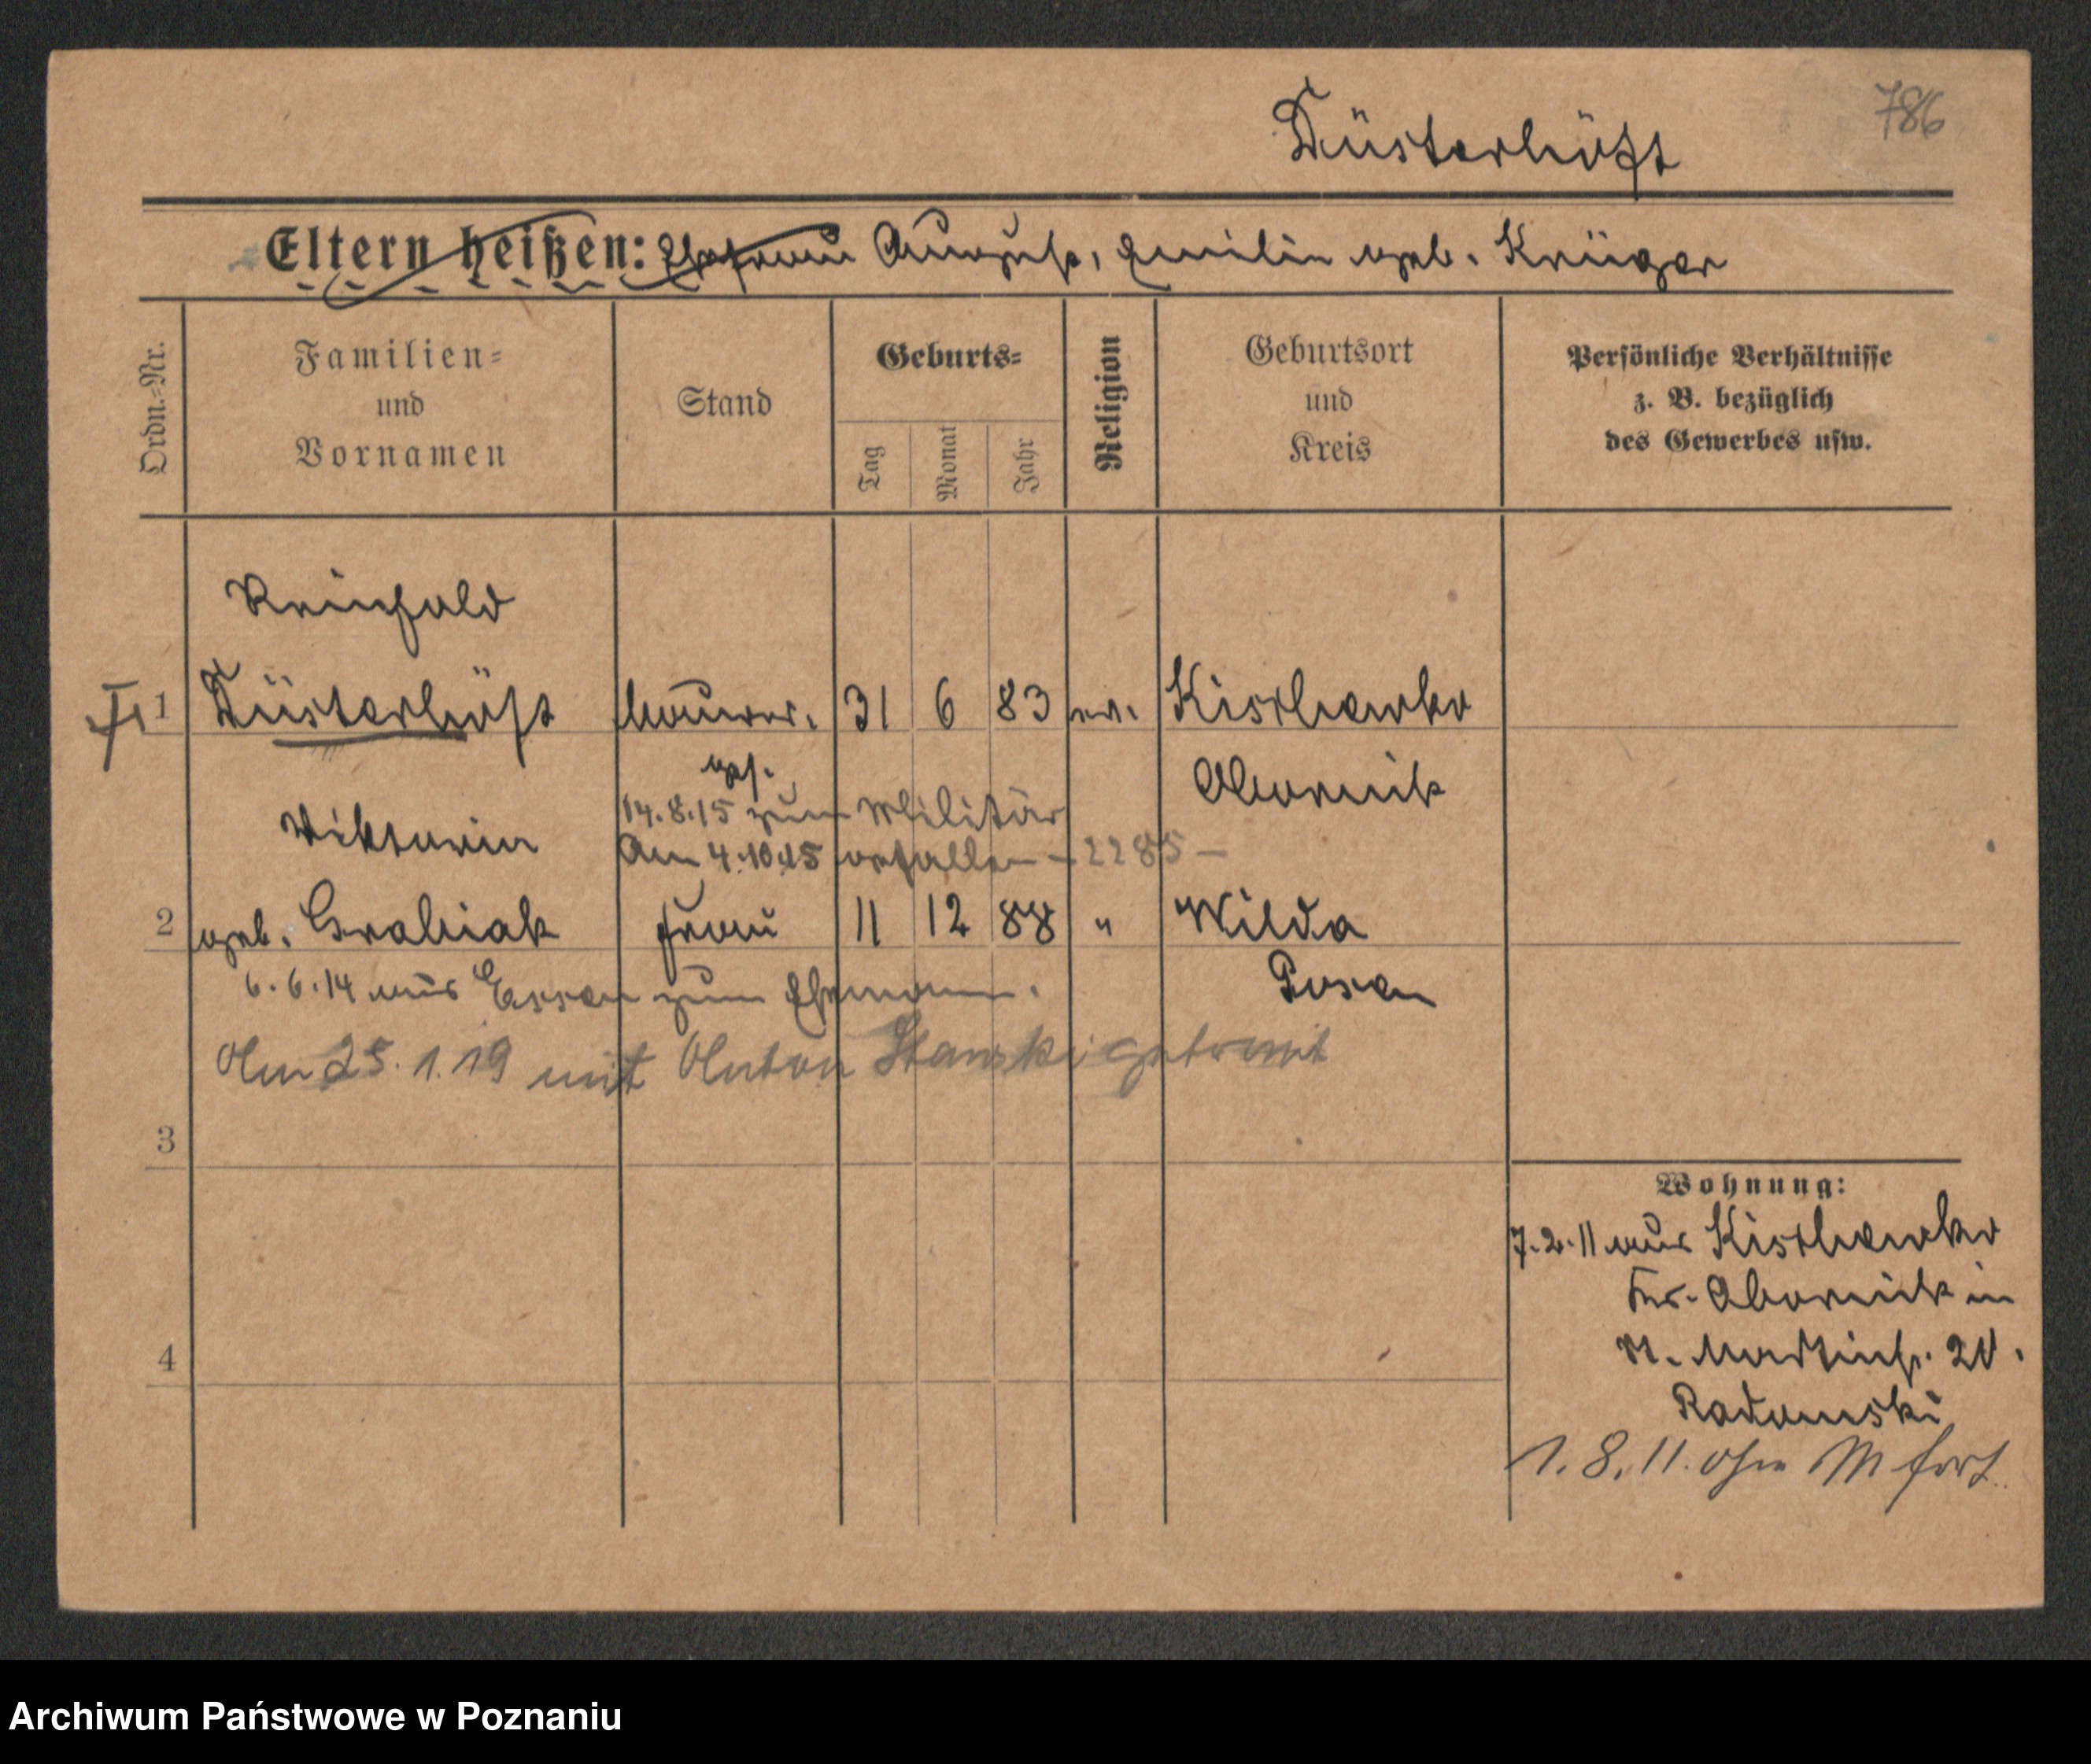 786
Düsterhöft
Eltern heißen: Ehefrau August, Emilie geb. Krüger
Ordn.=Nr.
Familien=
und
Vornamen
Stand
Geburts=
Tag
Monat
Jahr
Religion
Geburtsort
und
Kreis
Persönliche Verhältnisse
z. B. bezüglich
des Gewerbes usw.
Reinhold
1 Düsterhöft Maurer. 31 6 83 ev. Kischewko
Obornik
gef.
14.8.15 zum Militär
Am 4.10.15 gefallen - 2285 -
Viktoria
2 geb. Grabiak Frau 11 12 88 " Wilda
Posen
6.6.14 aus Essen zum Ehemann.
Am 25.1.19 mit Anton Stanski getraut
3
4
Wohnung:
7.2.11 aus Kischewko
Kr. Obornik in
St. Martinstr. 20.
Radomski
1.8.11. ohne M fort
Archiwum Państwowe w Poznaniu